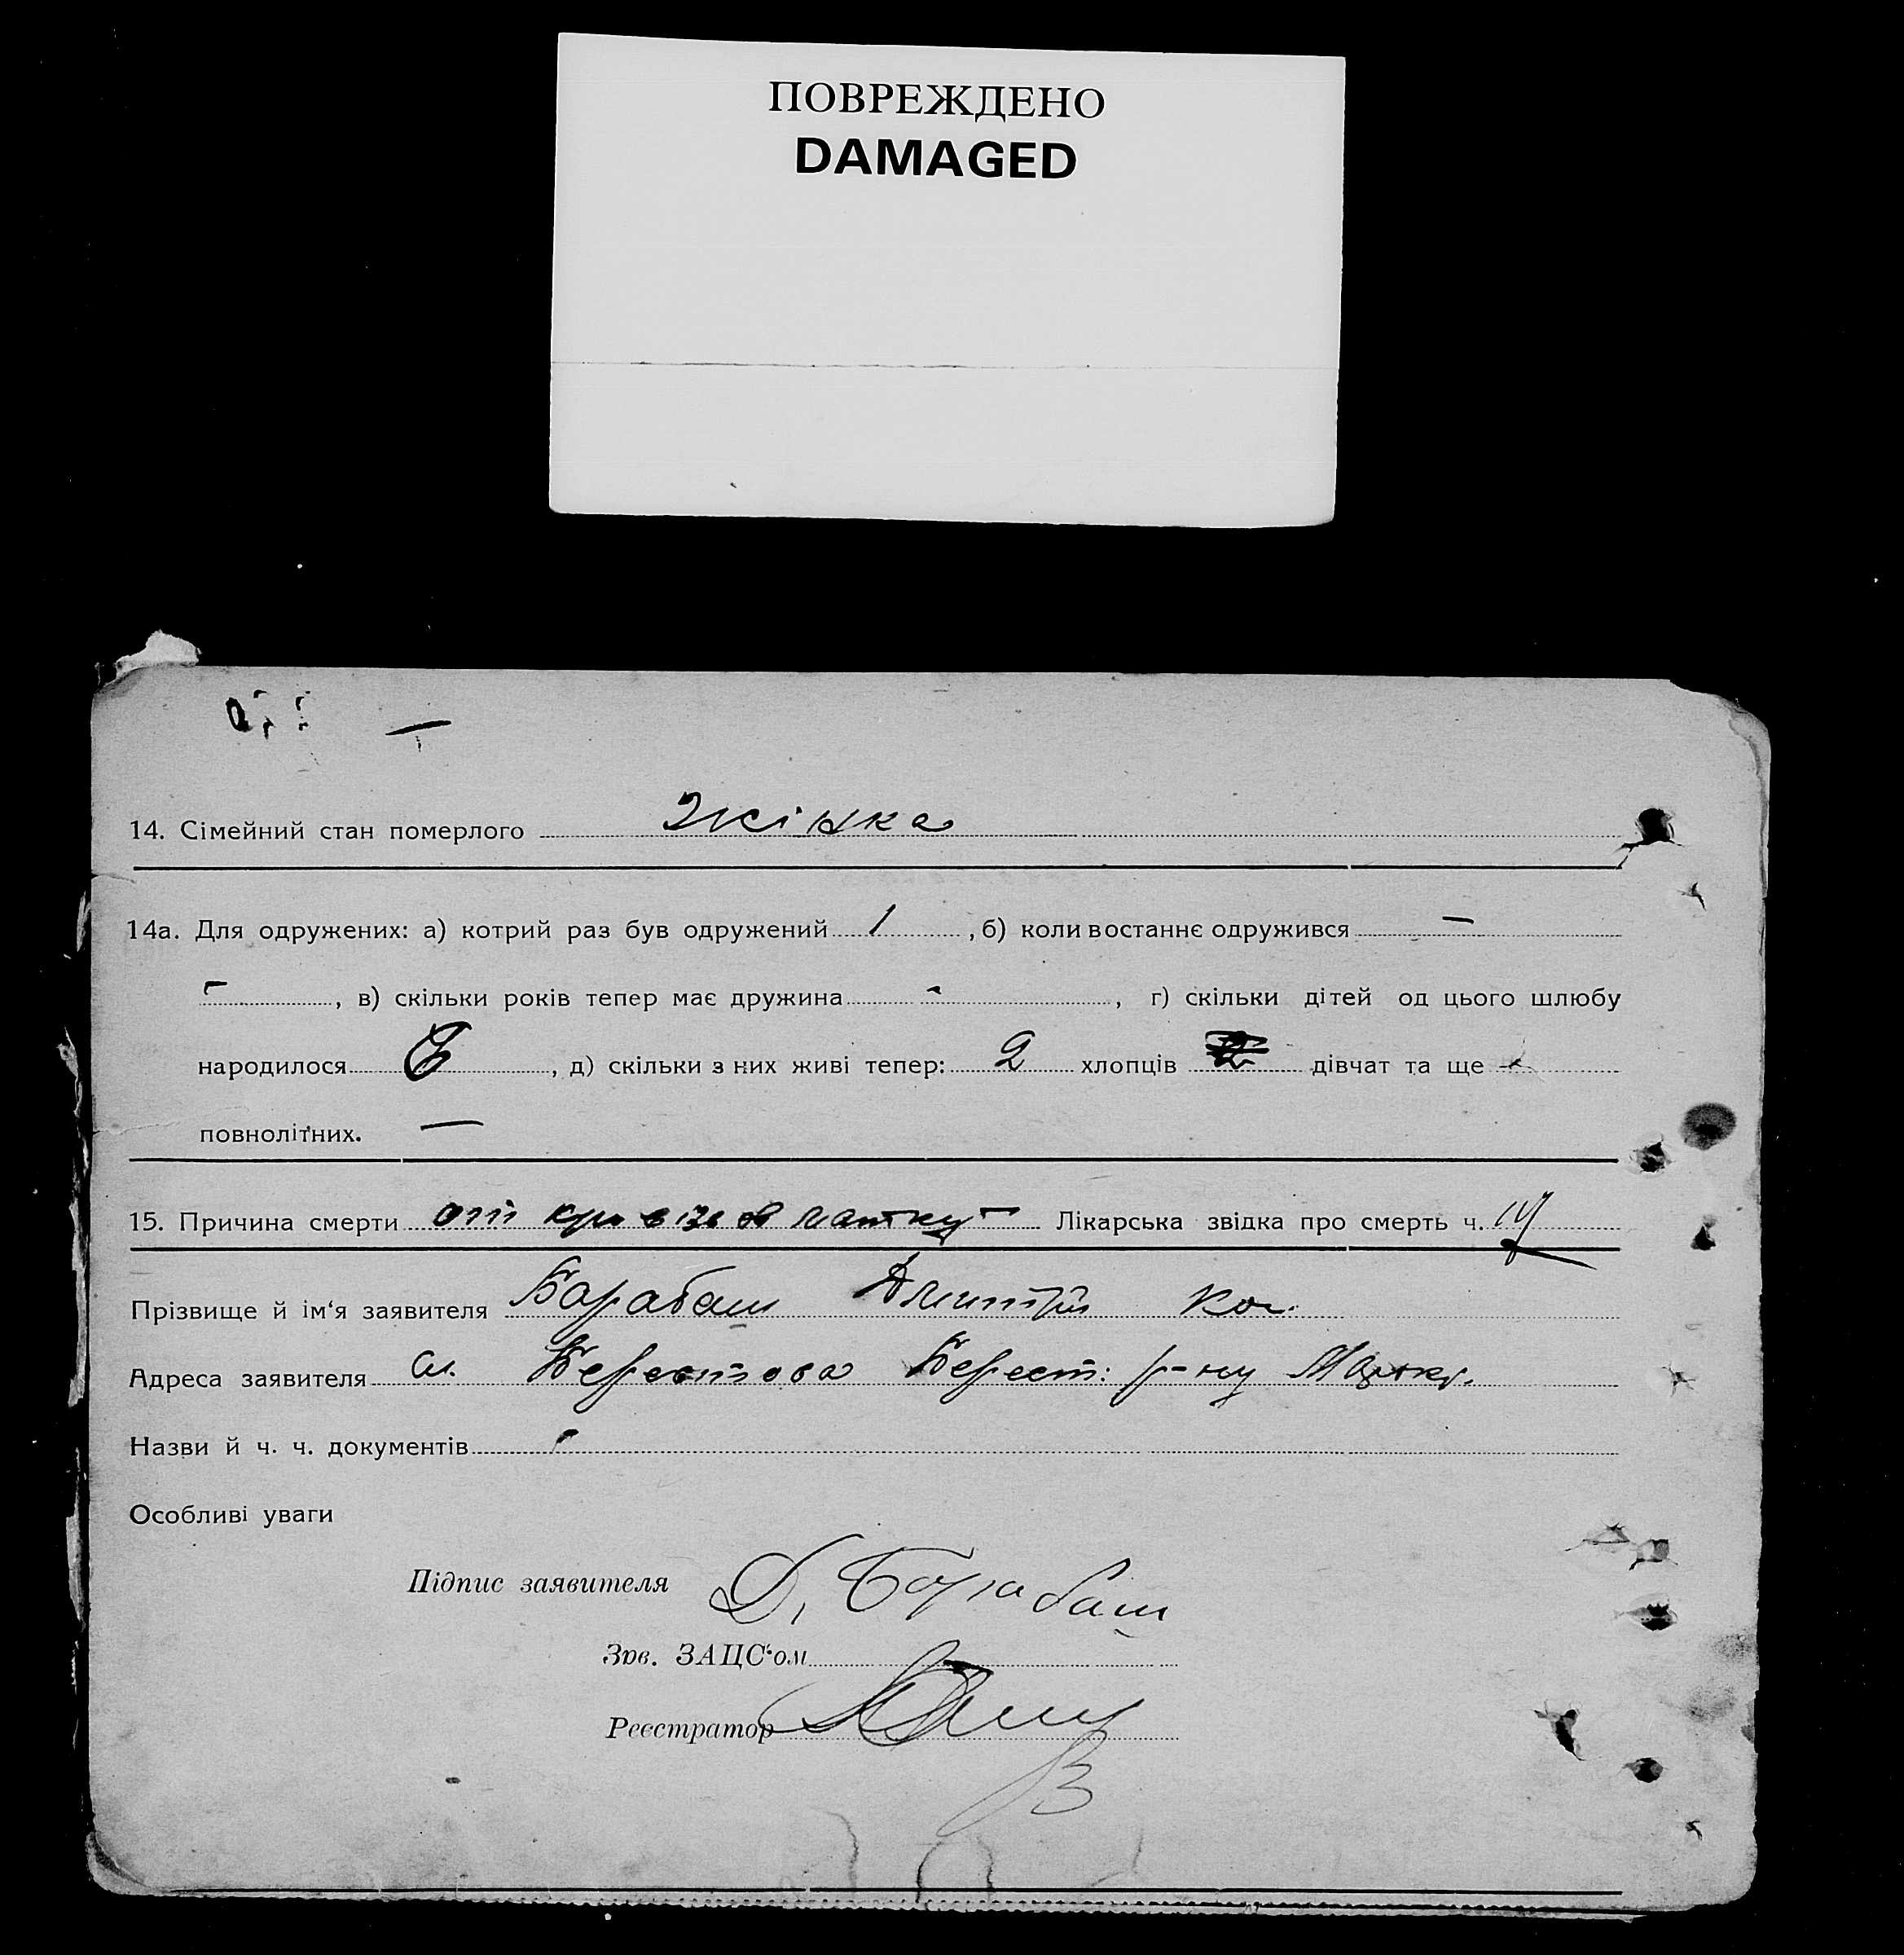 ПОВРЕЖДЕНО
DAMAGED
14. Сімейний стан померлого Жінка
14а. Для одружених: а) котрий раз був одружений 1, б) коли востаннє одружився —
–, в) скільки років тепер має дружина -, г) скільки дітей од цього шлюбу
народилося, д) скільки з них живі тепер: 2 хлопців дівчат та ще -
повнолітних. —
15. Причина смерти от матку – Лікарська звідка про смерть ч.
Прізвище й ім‘я заявителя Барабаш Дмитрій
Адреса заявителя сл. Берестова Берест. р-ну
Назви й ч. ч. документів -
Особливі уваги
Підпис заявителя Д. Барабаш
Зав. ЗАЦС‘ом
Реєстратор